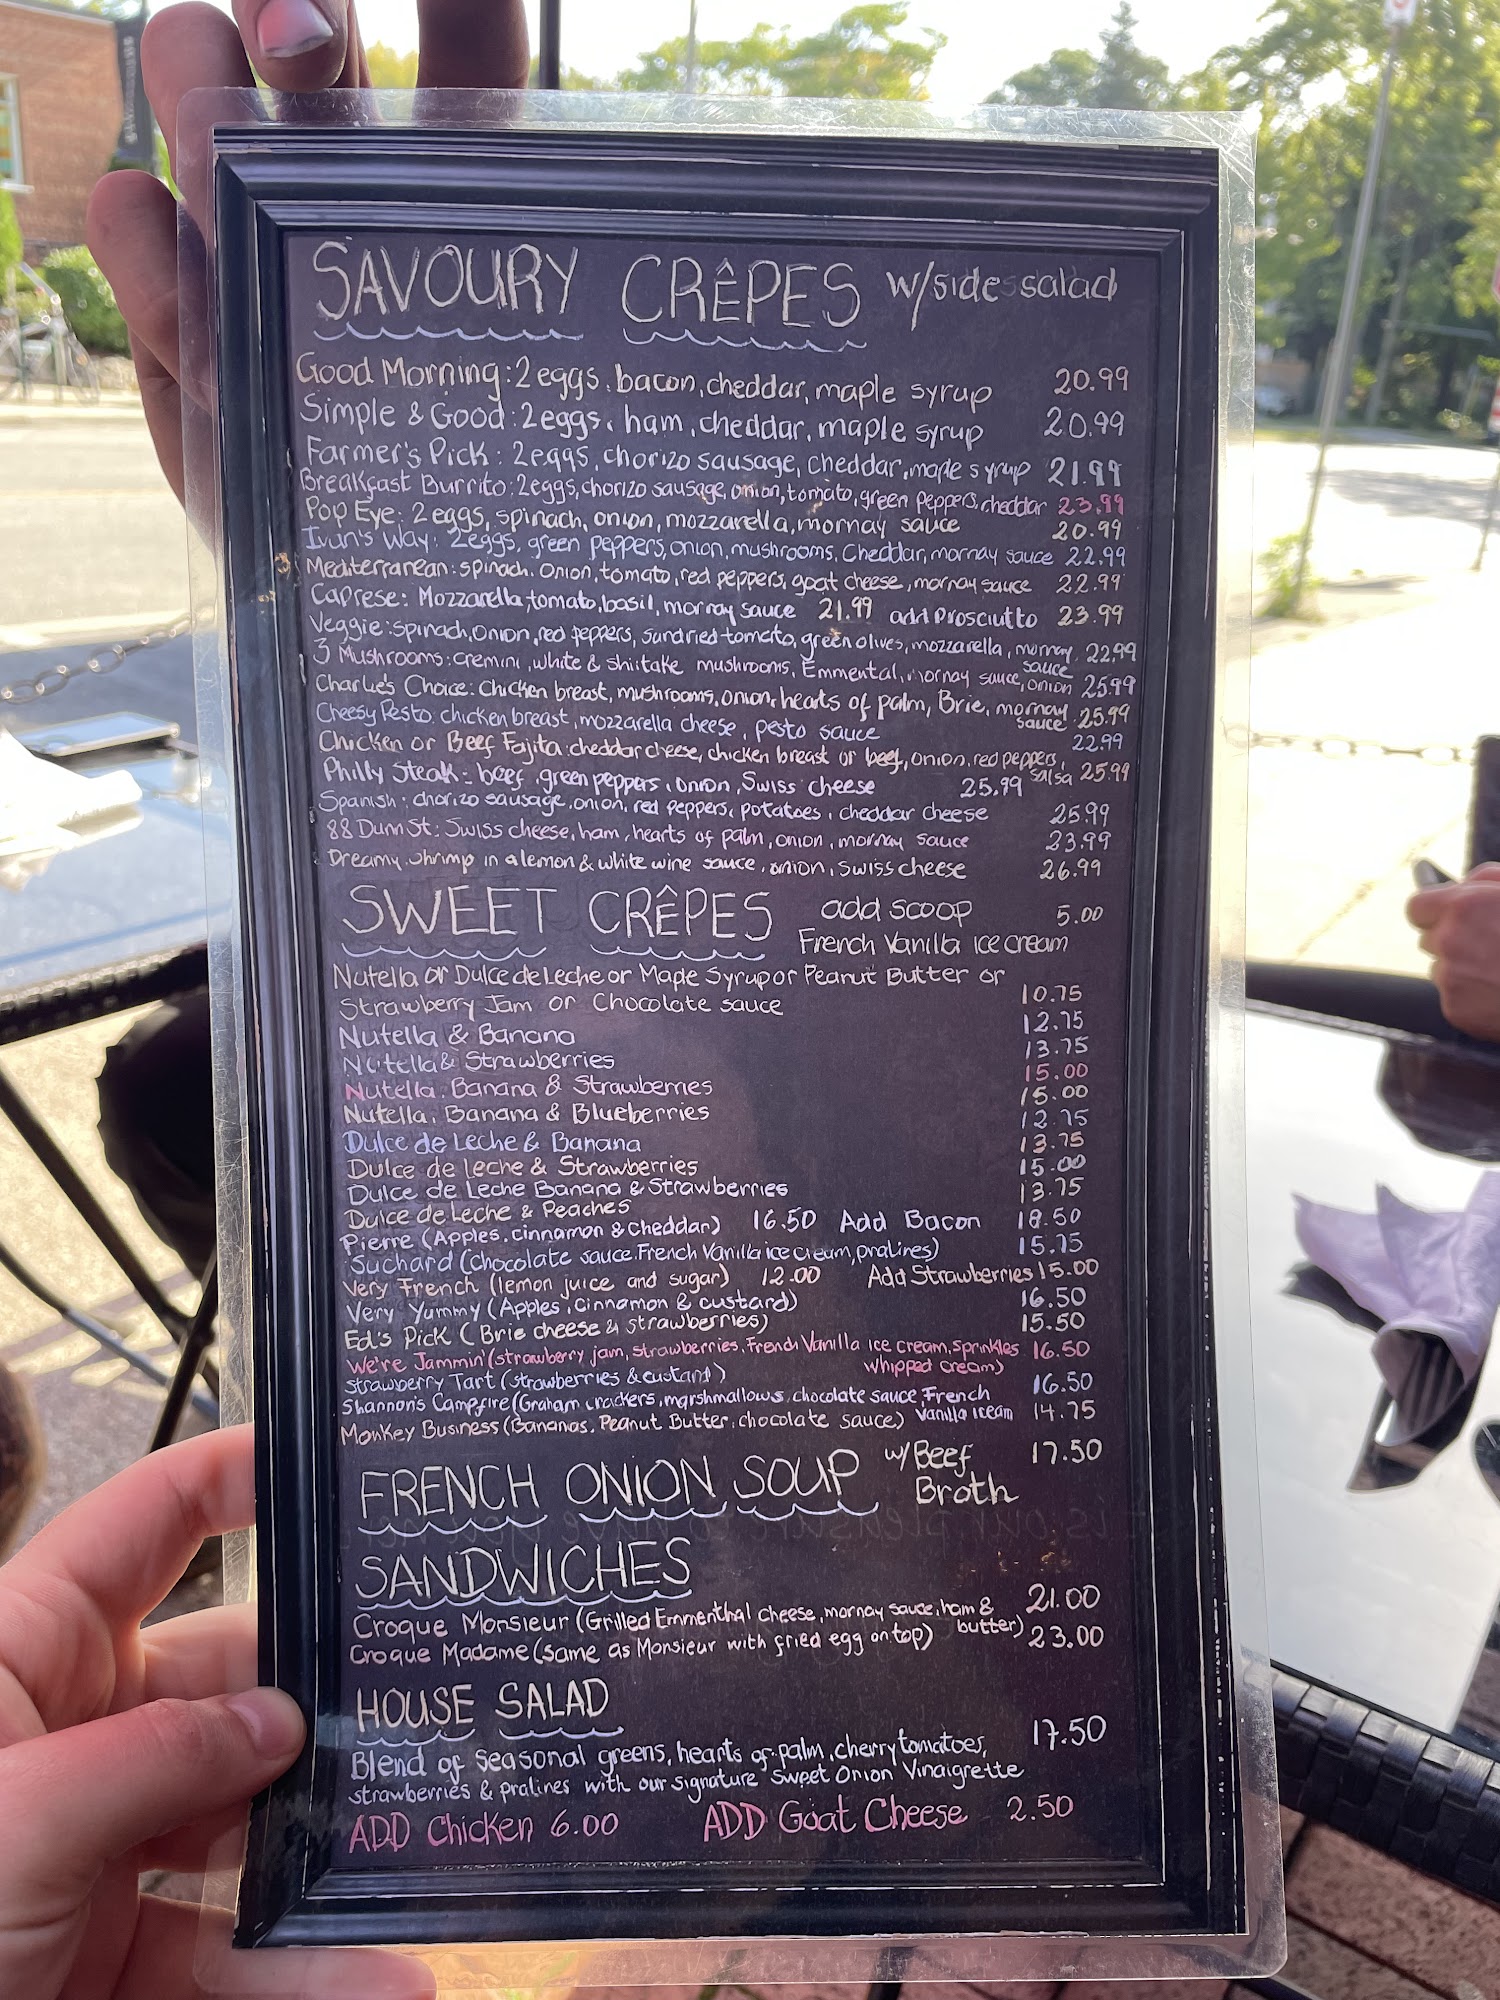 SAVOURY CRÊPES w/side salad
Good Morning: 2 eggs, bacon, cheddar, maple syrup 20.99
Simple & Good: 2 eggs, ham, cheddar, maple syrup 20.99
Farmer's Pick: 2 eggs, chorizo sausage, cheddar, maple syrup 21.99
Breakfast Burrito: 2 eggs, chorizo sausage, onion, tomato, green peppers, cheddar 23.99
Pop Eye: 2 eggs, spinach, onion, mozzarella, mornay sauce 20.99
Ivan's Way: 2 eggs, green peppers, onion, mushrooms, Cheddar, mornay sauce 22.99
Mediterranean: spinach, onion, tomato, red peppers, goat cheese, mornay sauce 22.99
Caprese: Mozzarella, tomato, basil, mornay sauce 21.99 add Prosciutto 23.99
Veggie: spinach, onion, red peppers, sundried tomato, green olives, mozzarella, mornay sauce 22.99
3 Mushrooms: cremini, white & shiitake mushrooms, Emmental, mornay sauce, onion 25.99
Charlie's Choice: Chicken breast, mushrooms, onion, hearts of palm, Brie, mornay sauce 25.99
Cheesy Pesto: chicken breast, mozzarella cheese, pesto sauce 22.99
Chicken or Beef Fajita: cheddar cheese, chicken breast or beef, onion, red peppers, salsa 25.99
Philly Steak: beef, green peppers, onion, Swiss cheese 25.99
Spanish: chorizo sausage, onion, red peppers, potatoes, cheddar cheese 25.99
88 Dunn St: Swiss cheese, ham, hearts of palm, onion, mornay sauce 23.99
Dreamy Shrimp in a lemon & white wine sauce, onion, Swiss cheese 26.99
SWEET CRÊPES add scoop 5.00
French Vanilla ice cream
Nutella or Dulce de Leche or Maple Syrup or Peanut Butter or
Strawberry Jam or Chocolate sauce 10.75
Nutella & Banana 12.75
Nutella & Strawberries 13.75
Nutella, Banana & Strawberries 15.00
Nutella, Banana & Blueberries 15.00
Dulce de Leche & Banana 12.75
Dulce de leche & Strawberries 13.75
Dulce de Leche Banana & Strawberries 15.00
Dulce de Leche & Peaches 13.75
Pierre (Apples, cinnamon & cheddar) 16.50 Add Bacon 18.50
Suchard (chocolate sauce, French Vanilla ice cream, pralines) 15.75
Very French (lemon juice and sugar) 12.00 Add Strawberries 15.00
Very Yummy (Apples, Cinnamon & custard) 16.50
Ed's Pick (Brie cheese & strawberries) 15.50
We're Jammin' (strawberry jam, strawberries, French Vanilla ice cream, sprinkles 16.50
whipped cream)
Strawberry Tart (strawberries & custard)
Shannon's Campfire (Graham crackers, marshmallows, chocolate sauce, French 16.50
Vanilla icream
Monkey Business (Bananas, Peanut Butter, chocolate sauce) 14.75
FRENCH ONION SOUP w/Beef Broth 17.50
SANDWICHES
Croque Monsieur (Grilled Emmenthal cheese, mornay sauce, ham & butter) 21.00
Croque Madame (same as Monsieur with fried egg on top) 23.00
HOUSE SALAD 17.50
Blend of seasonal greens, hearts of palm, cherry tomatoes,
strawberries & pralines with our signature Sweet Onion Vinaigrette
ADD Chicken 6.00 ADD Goat Cheese 2.50